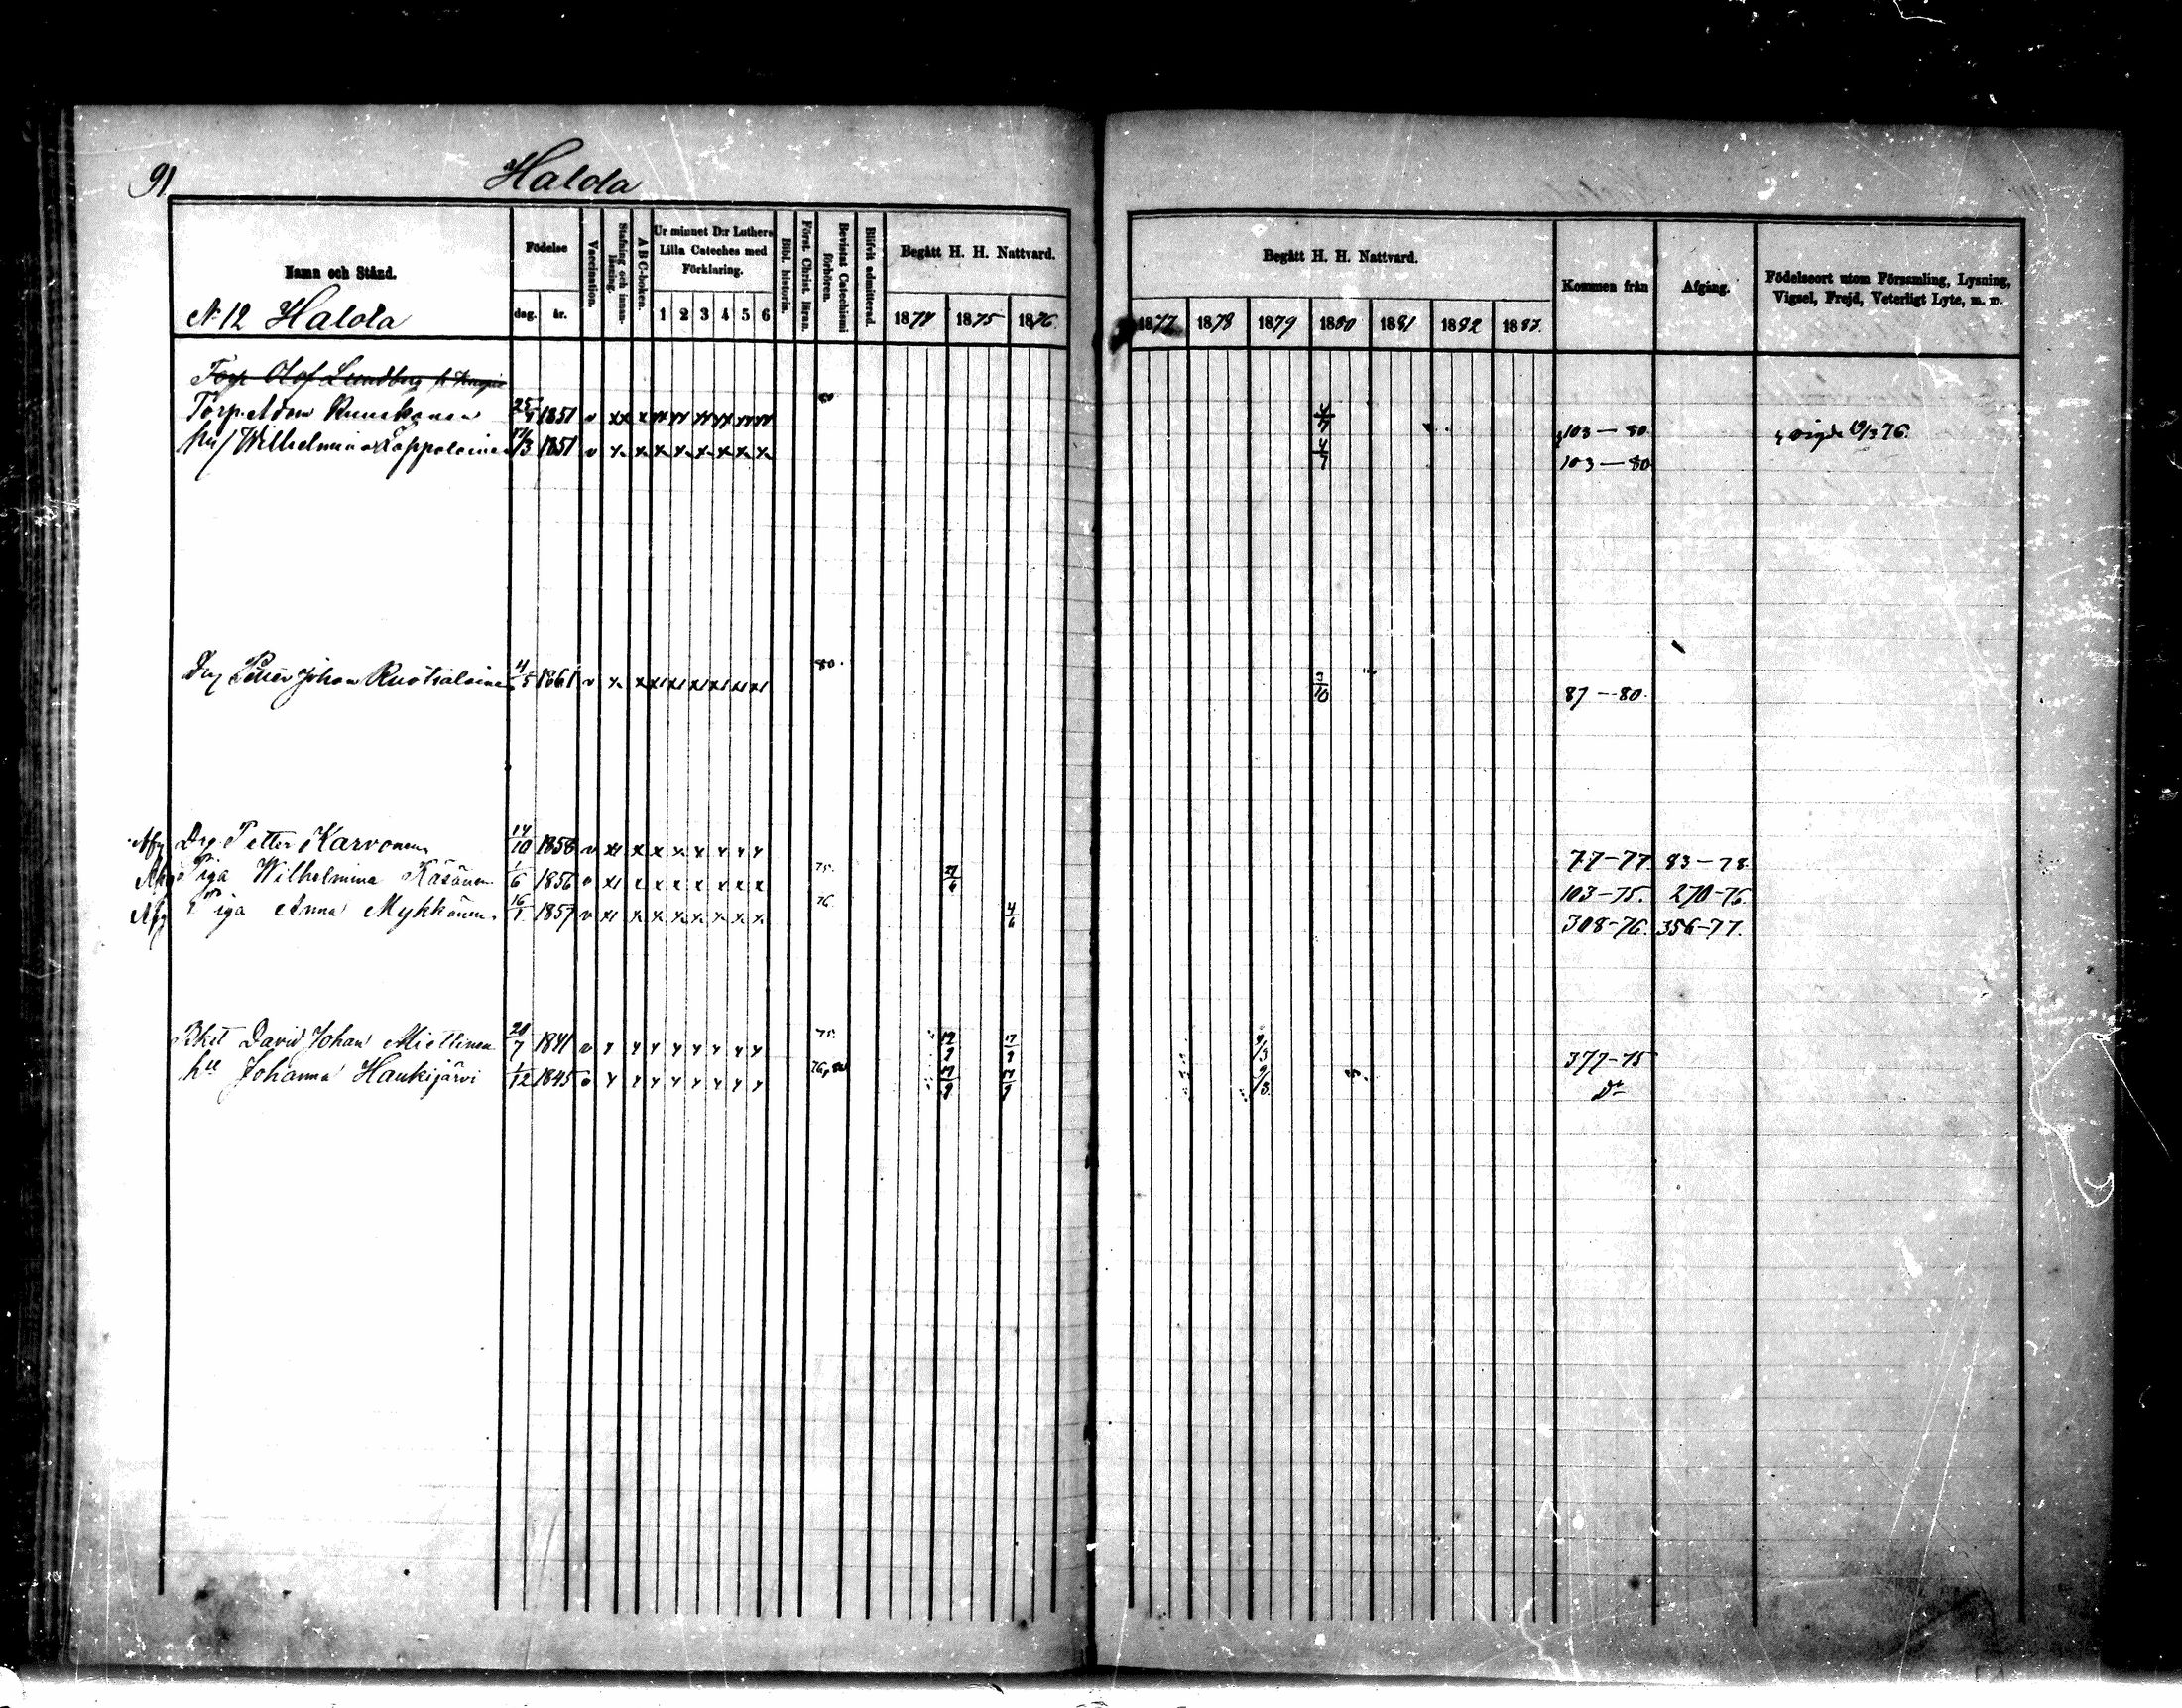 91
Halola
Namn och Stånd.
Födelse
dag. år.
Vaccination.
Stafning och innan-läsning.
ABC-boken.
Ur minnet D:r Luthers Lilla Cateches med Förklaring.
1 2 3 4 5 6
Bibl. historia.
Först. Christ. läran.
Bevistat Catechismi förhören.
Blifvit admitterad.
Begått H. H. Nattvard.
1874 1875 1876
Begått H. H. Nattvard.
1877 1878 1879 1880 1881 1882 1883
Kommen från
Afgång.
Födelseort utom Församling, Lysning, Vigsel, Frejd, Veterligt Lyte, m. m.
N:12 Halola
Torp. Olof Lundberg
Torp. Adam Ruuskanen 25/1 1851 v 80 4/7 103-80 vigde 19/3 76.
hu/ Wilhelmina Tappolainen /3 1851 v 4/7 103-80
Drg Petter Johan Ruotsalainen 4/5 1861 v 80. 3/10 87-80.
Afg Drg Petter Karvonen 14/10 1858 v 77-77 83-78
Afg Piga Wilhelmina Räsänen 1/6 1856 v 75. 103-75. 270-76.
Afg Piga Anna Mykkänen 16/1 1857 v 76 4/6 308-76. 356-77.
David Johan Miettinen 20/7 1841 v 75. 9/3 377-75
Johanna Haukijärvi 1/12 1845 v 76, 80 9/3 D:o